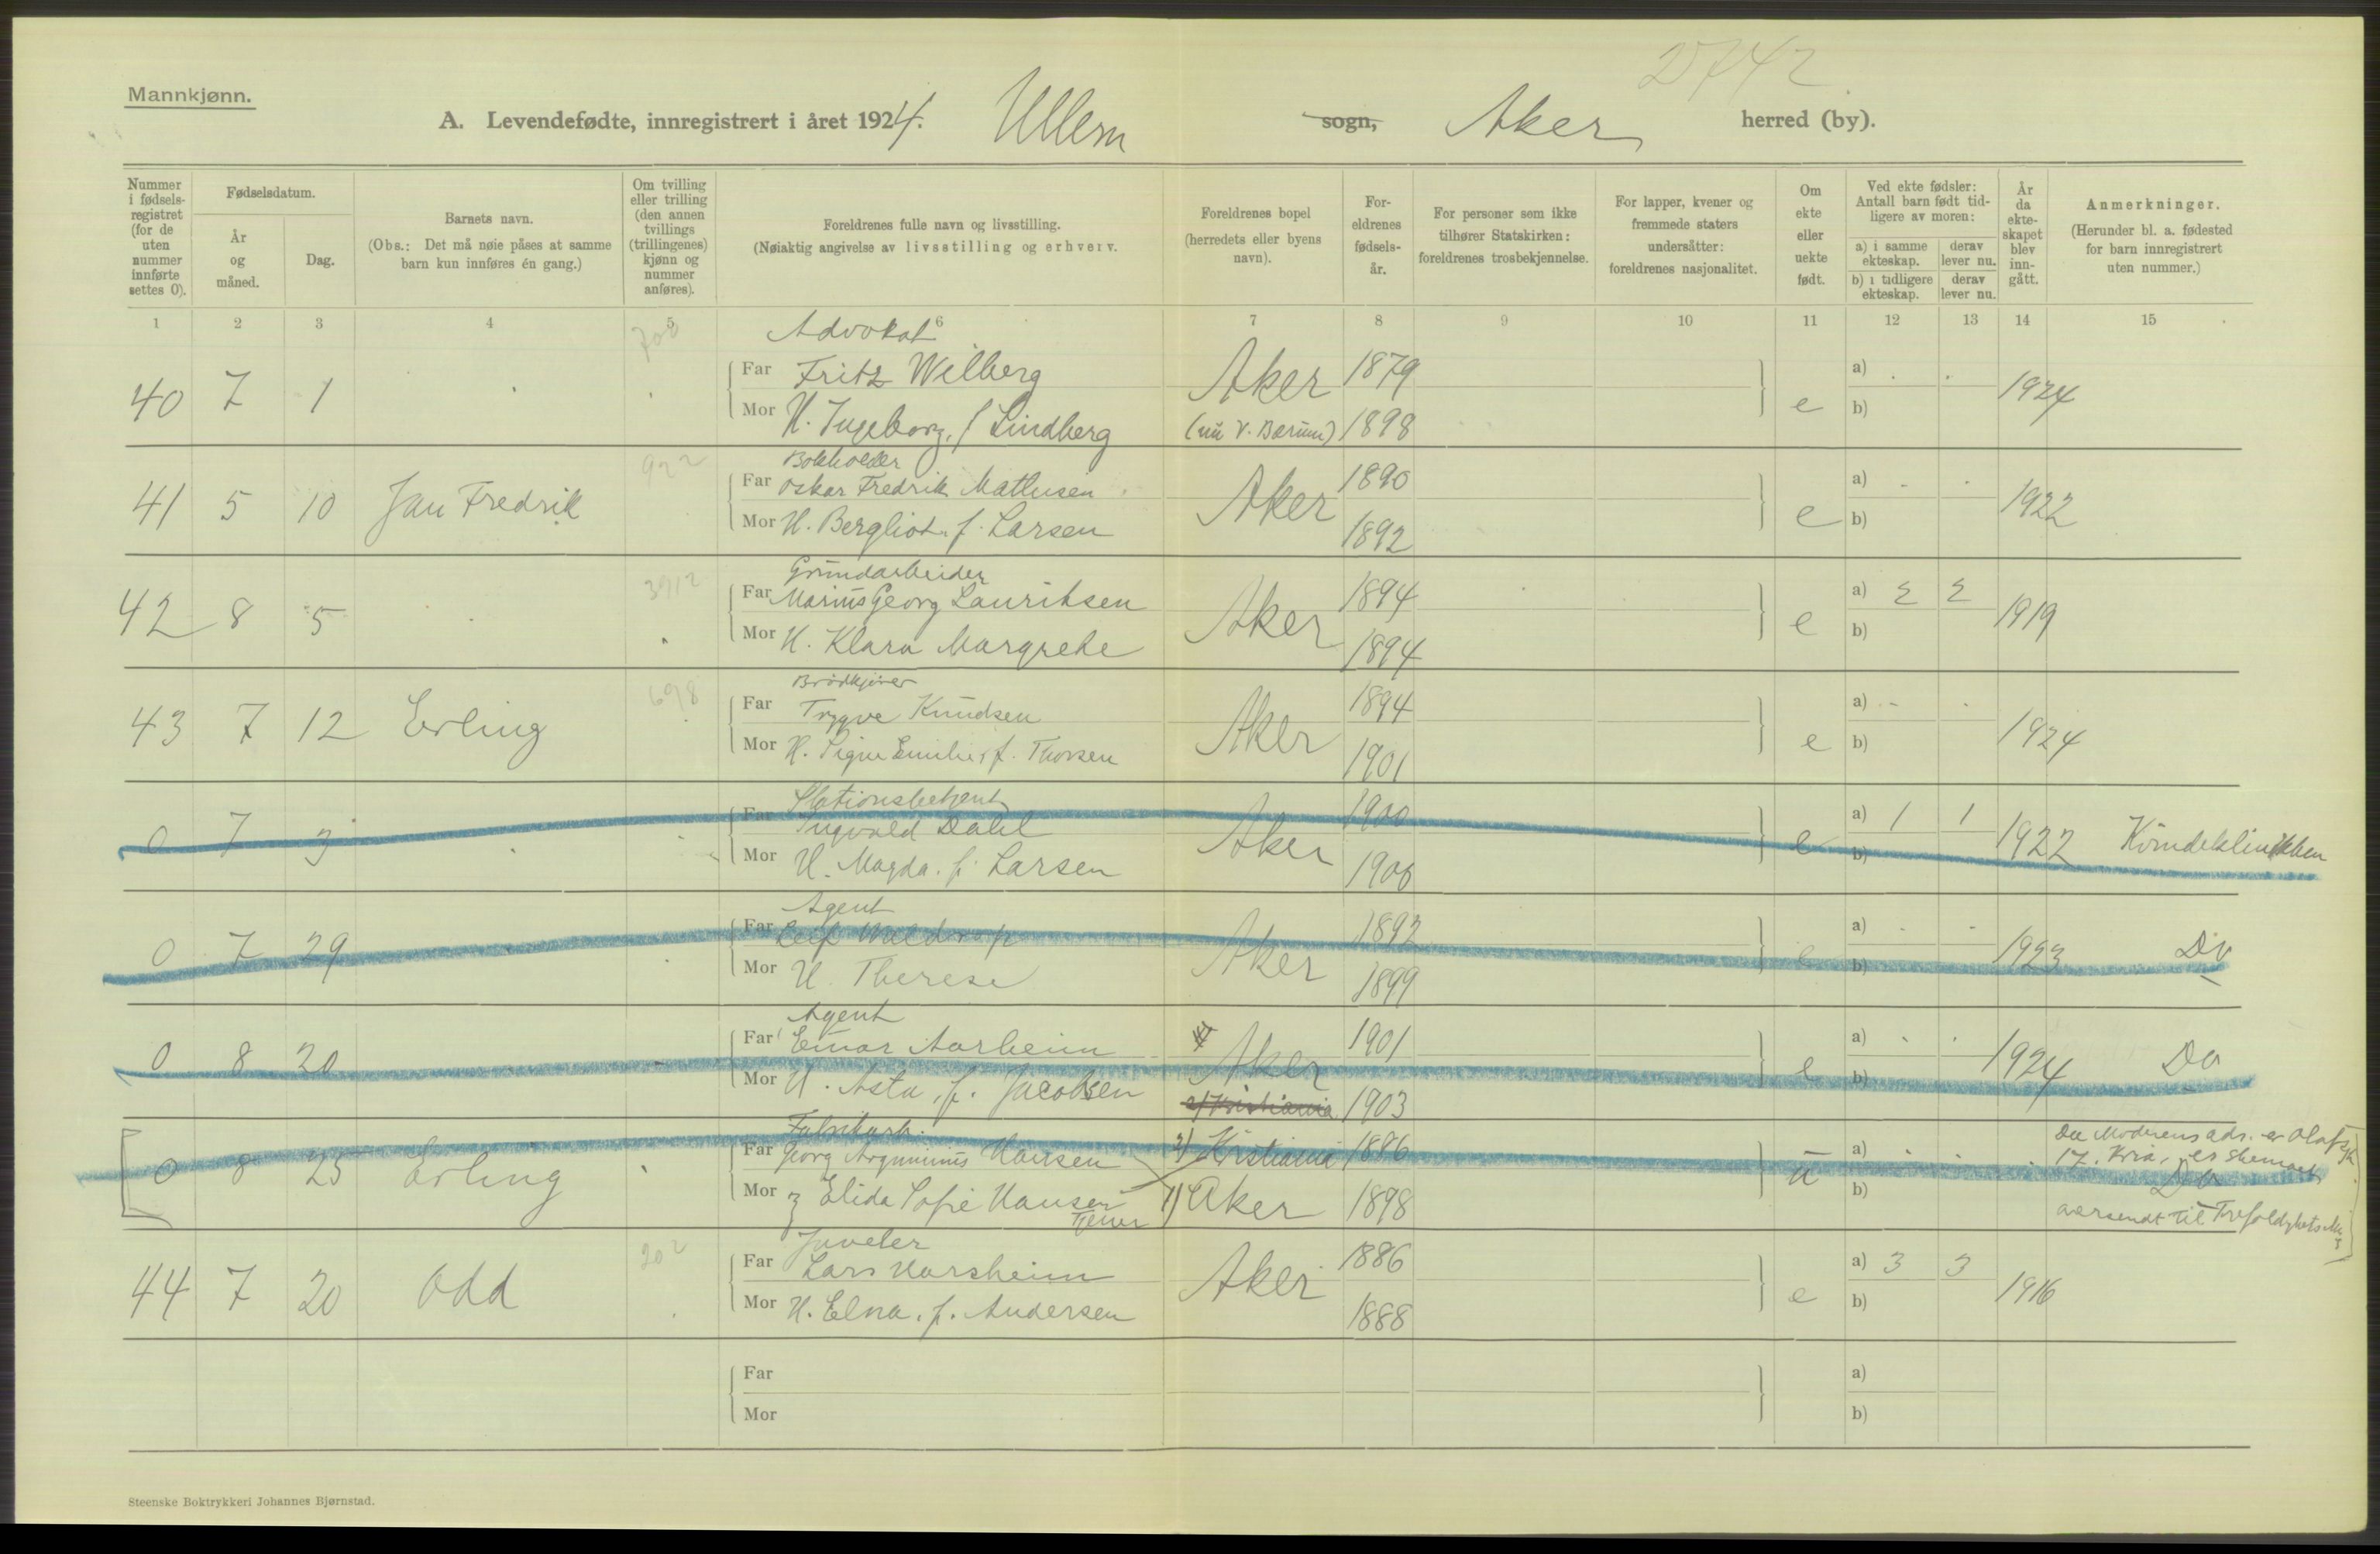 2742
Mannkjønn.
A. Levendefødte, innregistrert i året 1924. Ullern sogn, Aker herred (by).
Nummer i fødselsregistret (for de uten nummer innførte settes 0).
Fødselsdatum.
År og måned.
Dag.
Barnets navn.
(Obs.: Det må nøie påses at samme barn kun innføres én gang.)
Om tvilling eller trilling (den annen tvillings (trillingenes) kjønn og nummer anføres).
Foreldrenes fulle navn og livsstilling.
(Nøiaktig angivelse av livsstilling og erhverv.
Foreldrenes bopel (herredets eller byens navn).
Foreldrenes fødselsår.
For personer som ikke tilhører Statskirken: foreldrenes trosbekjennelse.
For lapper, kvener og fremmede staters undersåtter: foreldrenes nasjonalitet.
Om ekte eller uekte født.
Ved ekte fødsler: Antall barn født tidligere av moren:
a) i samme ekteskap. derav lever nu.
b) i tidligere ekteskap. derav lever nu.
År da ekteskapet blev inngått.
Anmerkninger.
(Herunder bl. a. fødested for barn innregistrert uten nummer.)
1 2 3 4 5 6 7 8 9 10 11 12 13 14 15
700 Advokat
40 7 1 Far Fritz Wilberg Aker 1879 e a) . . 1924
Mor H. Ingeborg, f Lindberg (nu V. Bærum) 1898 b)
922 Bokholder
41 5 10 Jan Fredrik Far Oskar Fredrik Mathisen Aker 1890 e a) - . 1922
Mor H. Bergliot. f. Larsen 1892 b)
3912 Grundarbeider
42 8 5 Far Marius Georg Lauritsen Aker 1894 e a) 2 2 1919
Mor H. Klara Margrethe 1894 b)
698 Brødkjører
43 7 12 Erling Far Trygve Knudsen Aker 1894 e a) - . 1924
Mor H. Signe Emilie, f. Thorsen 1901 b)
Stationsbetjent
0 7 3 Far Ingvald Dahl Aker 1900 e a) 1 1 1922 Kvindeklinikken
Mor H. Magda. f. Larsen 1900 b)
Agent
0 7 29 Far Leif Aker 1892 e a) . . 1923 Do
Mor H. Therese 1899 b)
Agent
0 8 20 Far Einar Aarheim Aker 1901 e a) . . 1924 Do
Mor H. Asta, f. Jacobsen 2) Kristiania 1903 b)
Fabrikarb.
0 8 25 Erling Far Georg Hansen 2) Kristiania 1886 u a) . . . Da Moderens adr. er Olafsgt. 17. Kria, er skemaet
Mor Elida Sofie Hansen 1) Aker 1898 b) Do
Tjener oversendt til Trefoldighets
202 Juveler
44 7 20 Odd Far Lars Aker 1886 e a) 3 3 1916
Mor H. Elna. f. Andersen 1888 b)
Far a)
Mor b)
Steenske Boktrykkeri Johannes Bjørnstad.